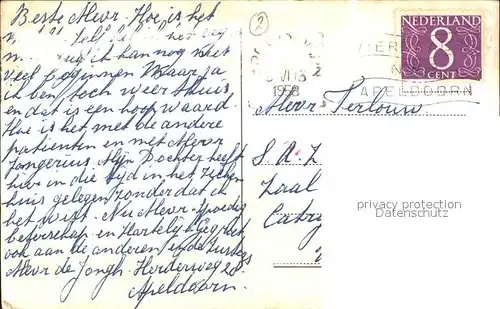 Beste Mevr. Hoe is het
ik kan nog niet
veel beginnen Maar ja
ik ben toch weer thuis
en dat is een hoop waard.
Hoe is het met de andere
patienten en met Mevr
Jongerius. Mijn Dochter heeft
hier in die tijd in het zieken
huis gelegen zonder dat ik
het wist. Nu Mevr. spoedig
beterschap en Hartelijk
ook aan de anderen en de zusters
Mevr de Jongh. Herderweg 28.
Apeldoorn.
2
NEDERLAND
8
CENT
1958
APELDOORN
Mevr Terlouw
S. R. Z
Zaal
privacy protection
Datenschutz